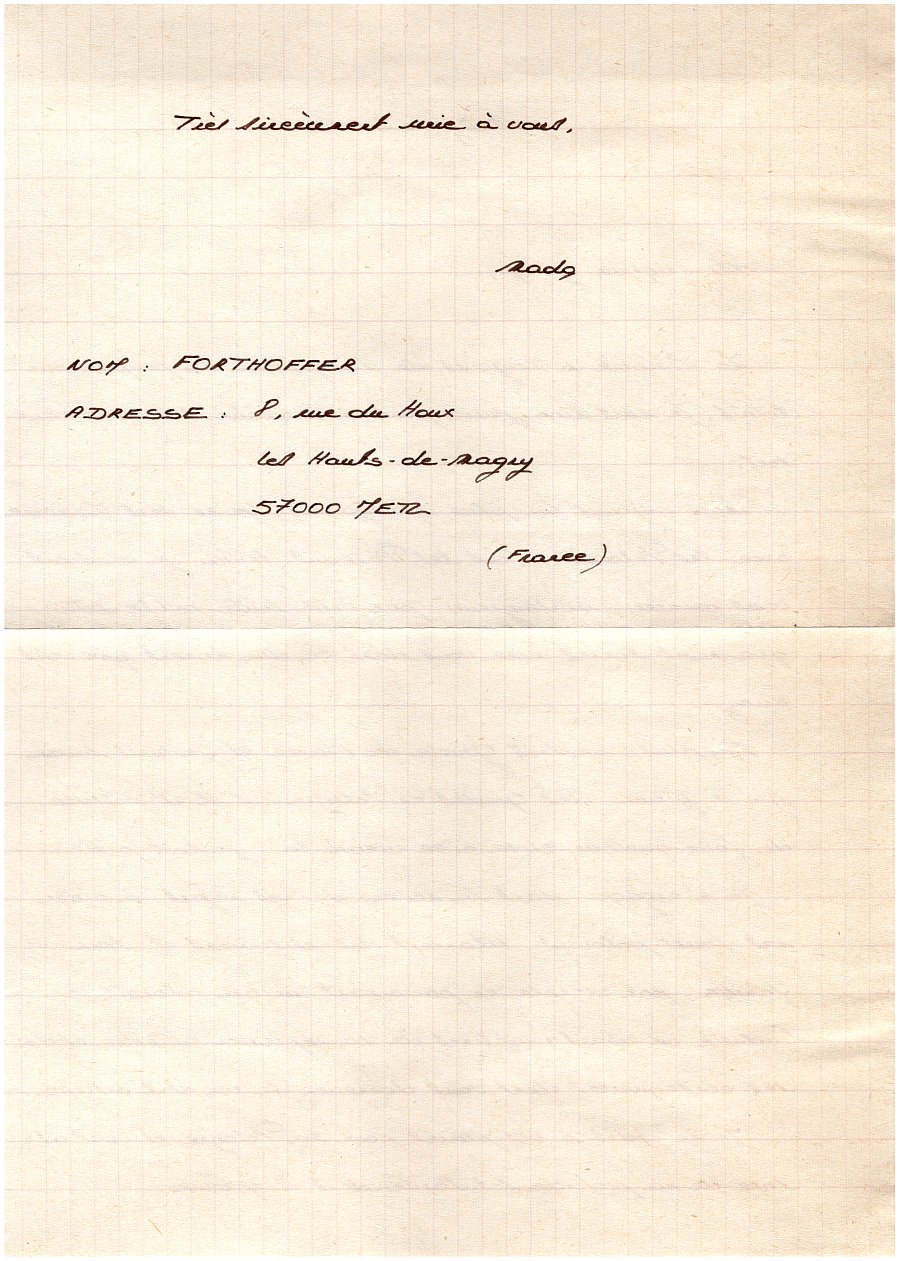 Très sincèrement unie à vous.
Mado
NOM : FORTHOFFER
ADRESSE : 8, rue du Houx
les Hauts-de-Magny
57000 METZ
(France)